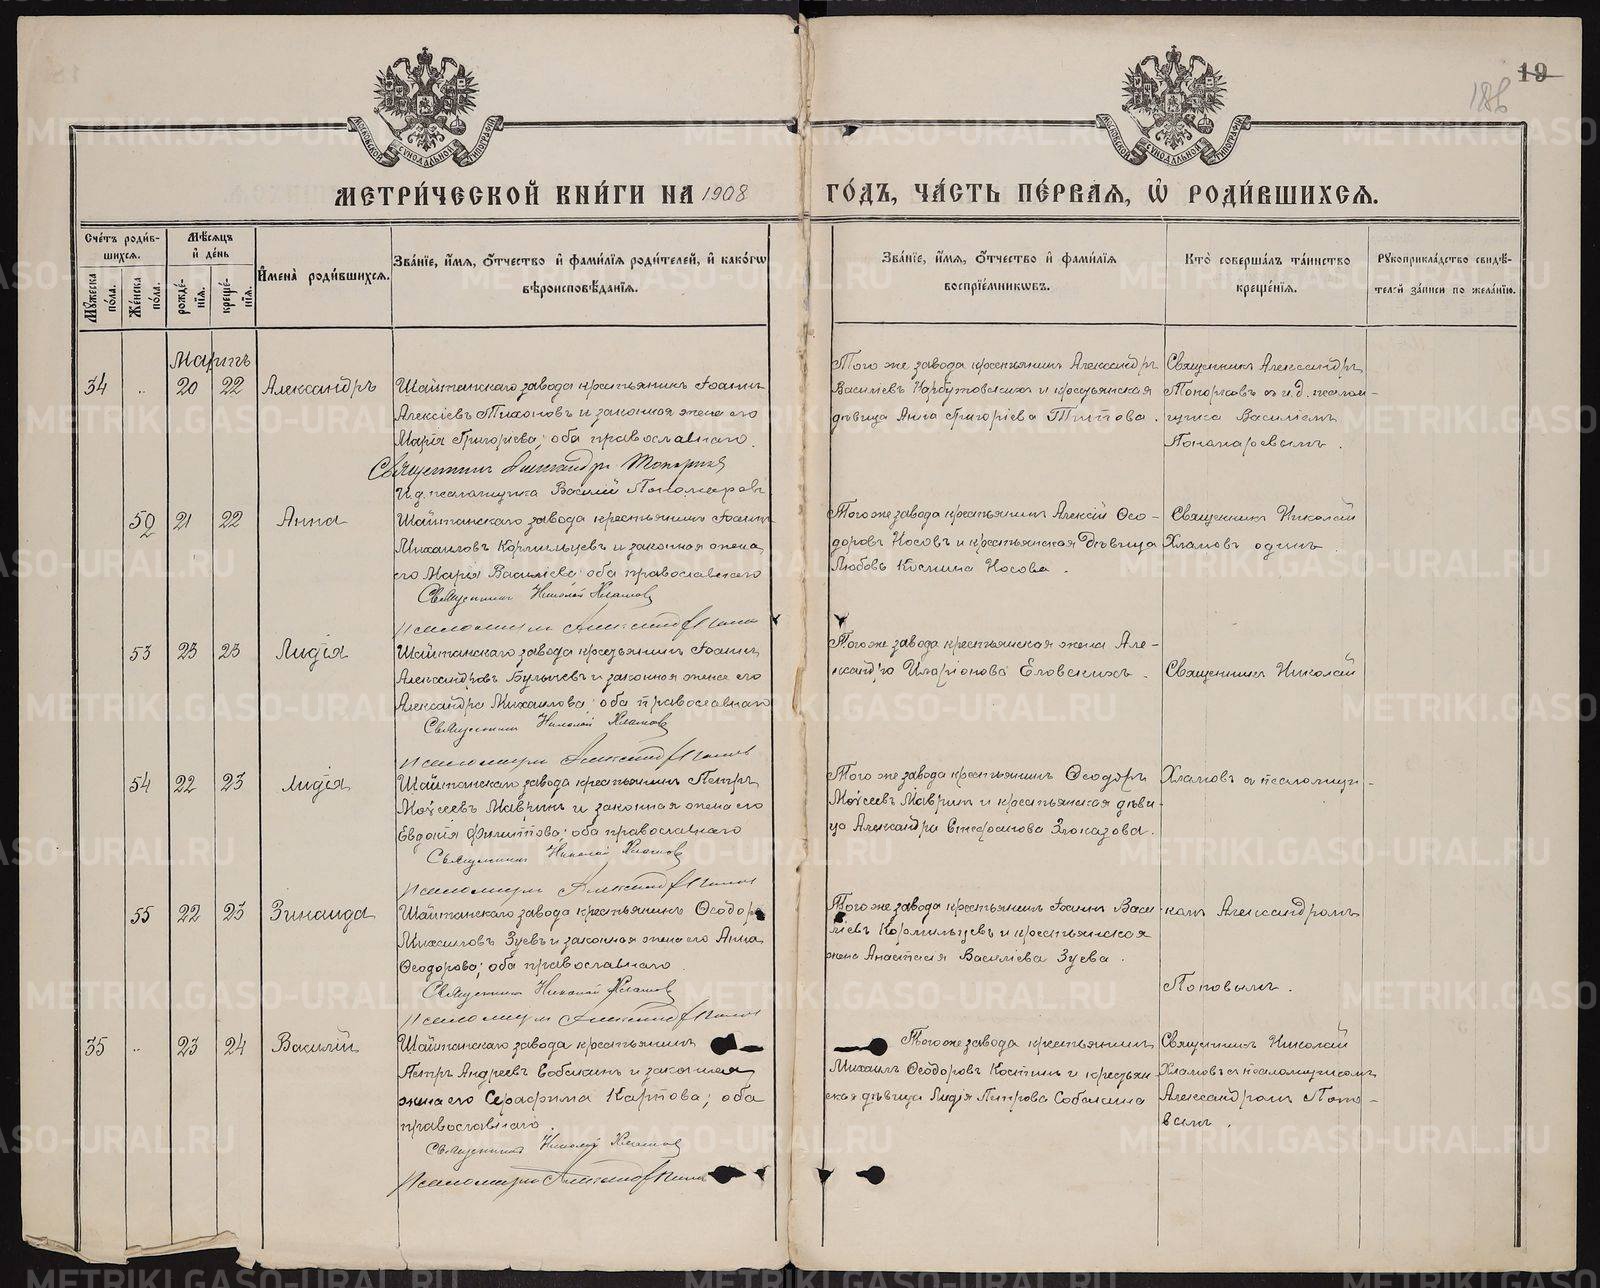 19
186
МОСКОВСКОЙ СѴНОДАЛЬНОЙ ТИПОГРАФІИ
МОСКОВСКОЙ СѴНОДАЛЬНОЙ ТИПОГРАФІИ
МЕТРИ́ЧЕСКОЙ КНИ́ГИ НА 1908 ГО́ДЪ, ЧА́СТЬ ПЕ́РВАЯ, Ѽ РОДИ́ВШИХСЯ.
Сче́тъ роди́в-
шихся.
Мꙋ́жеска по́ла.
Же́нска по́ла.
Мѣ́сяцъ
и҆ де́нь
рожде́нїя.
креще́нїя.
И҆мена̀ роди́вшихся.
Зва́нїе, и҆́мя, ѻ҆́тчество и҆ фами́лїя роди́телей, и҆ како́гѡ
вѣроисповѣ́данїя.
Зва́нїе, и҆́мя, ѻ҆́тчество и҆ фами́лїя
воспрїе́мникѡвъ.
Кто̀ соверша́лъ та́инство
креще́нїя.
Рꙋкоприкла́дство свидѣ́-
телей за́писи по жела́нїю.
Мартъ
34 „ 20 22 Александръ
Шайтанскаго завода крестьянинъ Іоаннъ
Алексіевъ Тихоновъ и законная жена его
Марія Григоріева; оба православнаго.
Священникъ Александръ Топорковъ
И.д. псаломщика Василій Пономаревъ
Того же завода крестьянинъ Александръ
Василіевъ Нарбутовскихъ и крестьянская
дѣвица Анна Григоріева Титова.
Священникъ Александръ
Топорковъ съ и.д. псалом-
щика Василіемъ
Пономаревымъ.
52 21 22 Анна
Шайтанскаго завода крестьянинъ Іоаннъ
Михаиловъ Кормильцевъ и законная жена
его Марія Василіева; оба православнаго
Священникъ Николай Хламовъ
Псаломщикъ Александръ Поповъ
Того же завода крестьянинъ Алексій Ѳео-
доровъ Носовъ и крестьянская дѣвица
Любовь Космина Носова.
Священникъ Николай
Хламовъ одинъ.
53 23 23 Лидія
Шайтанскаго завода крестьянинъ Іоаннъ
Александровъ Булычевъ и законная жена его
Александра Михаилова; оба православнаго
Священникъ Николай Хламовъ
Псаломщикъ Александръ Поповъ
Того же завода крестьянская жена Але-
ксандра Иларіонова Еловскихъ.
Священникъ Николай
54 22 23 Лидія
Шайтанскаго завода крестьянинъ Петръ
Моѵсеевъ Мавринъ и законная жена его
Евдокія Филиппова; оба православнаго
Священникъ Николай Хламовъ
Псаломщикъ Александръ Поповъ
Того же завода крестьянинъ Ѳеодоръ
Моѵсеевъ Мавринъ и крестьянская дѣви-
ца Александра Стефанова Злоказова.
Хламовъ съ псаломщи-
55 22 23 Зинаида
Шайтанскаго завода крестьянинъ Ѳеодоръ
Михаиловъ Зуевъ и законная жена его Анна
Ѳеодорова; оба православнаго
Священникъ Николай Хламовъ
Псаломщикъ Александръ Поповъ
Того же завода крестьянинъ Іоаннъ Васи-
ліевъ Кормильцевъ и крестьянская
жена Анастасія Василіева Зуева.
комъ Александромъ
Поповымъ.
35 „ 23 24 Василій
Шайтанскаго завода крестьянинъ
Петръ Андреевъ Собакинъ и законная
жена его Серафима Карпова; оба
православнаго.
Священникъ Николай Хламовъ
Псаломщикъ Александръ Поповъ
Того же завода крестьянинъ
Михаилъ Ѳеодоровъ Костинъ и крестьян-
ская дѣвица Лидія Петрова Собакина
Священникъ Николай
Хламовъ съ псаломщикомъ
Александромъ Попо-
вымъ.
METRIKI.GASO-URAL.RU